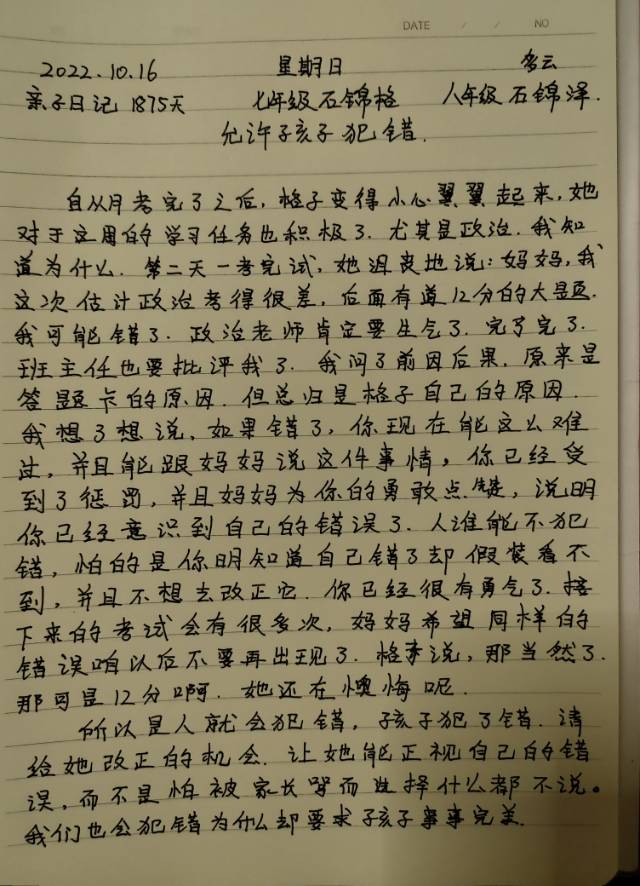 DATE / / NO
2022.10.16 星期日 多云
亲子日记 1875天 七年级石锦格 八年级石锦泽.
允许孩子犯错.
自从月考完了之后,格子变得小心翼翼起来,她
对于这周的学习任务也积极了.尤其是政治.我知
道为什么.第二天一考完试,她沮丧地说:妈妈,我
这次估计政治考得很差,后面有道12分的大题.
我可能错了.政治老师肯定要生气了.完了完了.
班主任也要批评我了.我问了前因后果.原来是
答题卡的原因.但总归是格子自己的原因.
我想了想说,如果错了,你现在能这么难
过,并且能跟妈妈说这件事情,你已经受
到了惩罚,并且妈妈为你的勇敢点赞,说明
你已经意识到自己的错误了.人谁能不犯
错,怕的是你明知道自己错了却假装看不
到,并且不想去改正它.你已经很有勇气了.接
下来的考试会有很多次,妈妈希望同样的
错误咱以后不要再出现了.格李说,那当然了.
那可是12分啊.她还在懊悔呢.
所以是人就会犯错,孩子犯了错.请
给她改正的机会.让她能正视自己的错
误,而不是怕被家长骂而选择什么都不说。
我们也会犯错为什么却要求孩子事事完美.